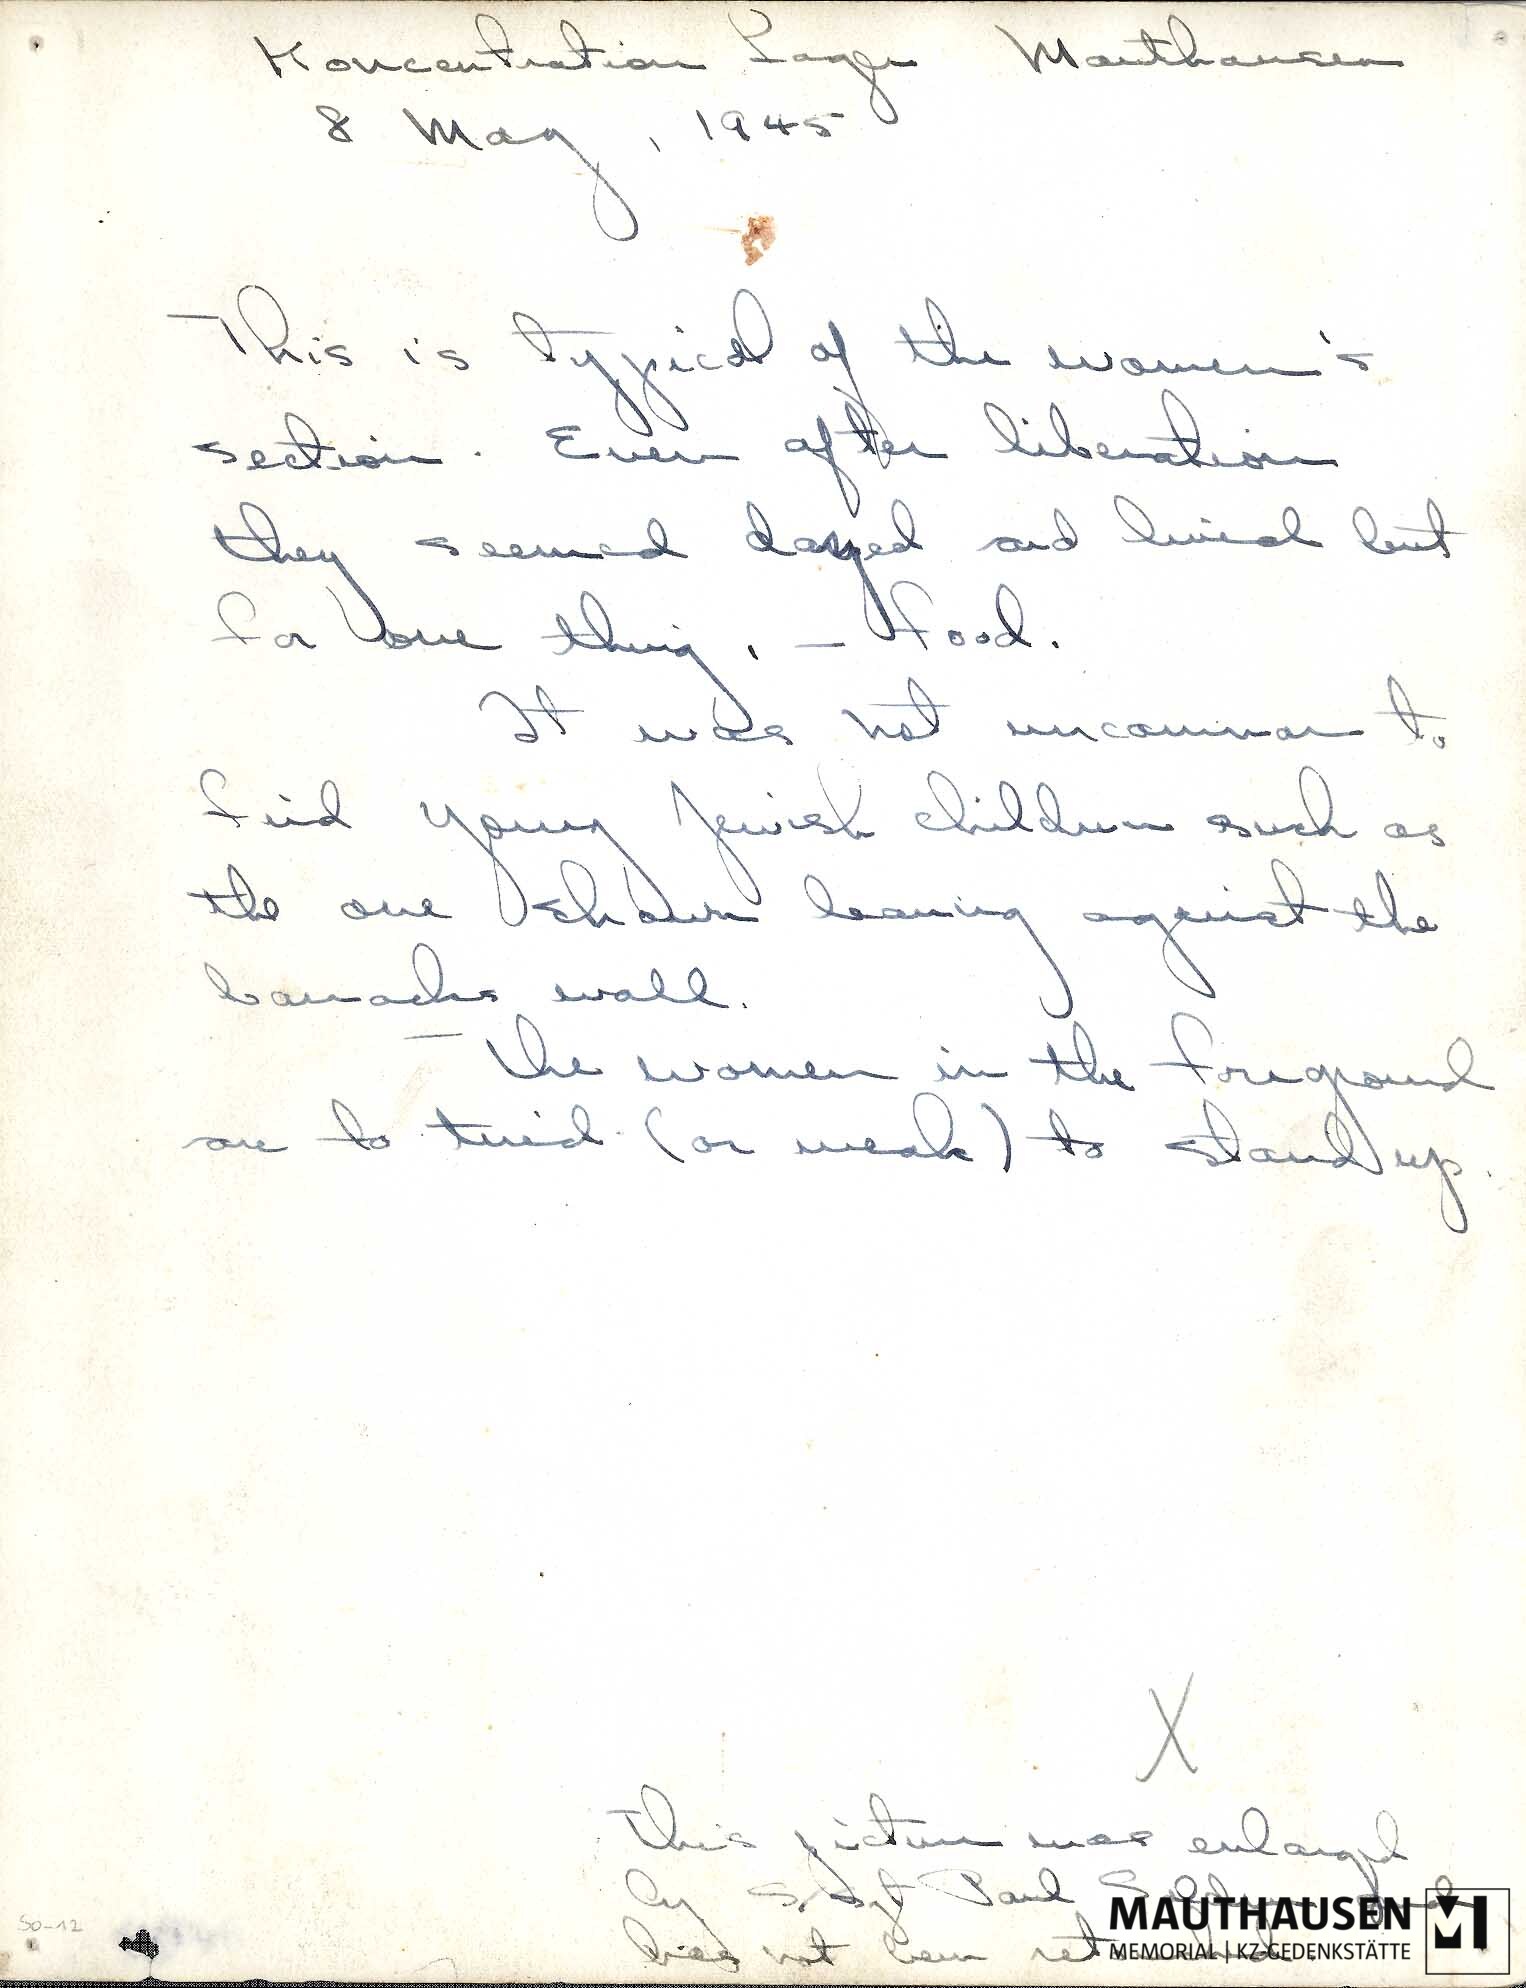 Koncentration Lager Mauthausen
8 May, 1945
This is typical of the women's
section. Even after liberation
they seemed dazed and lived but
for one thing, — food.
It was not uncommon to
find young Jewish children such as
the one shown leaning against the
barracks wall.
The women in the foreground
are to tired (or weak) to stand up.
X
This picture was enlarged
by S/Sgt Paul
has not been
MAUTHAUSEN
MEMORIAL | KZ-GEDENKSTÄTTE
M
50-12